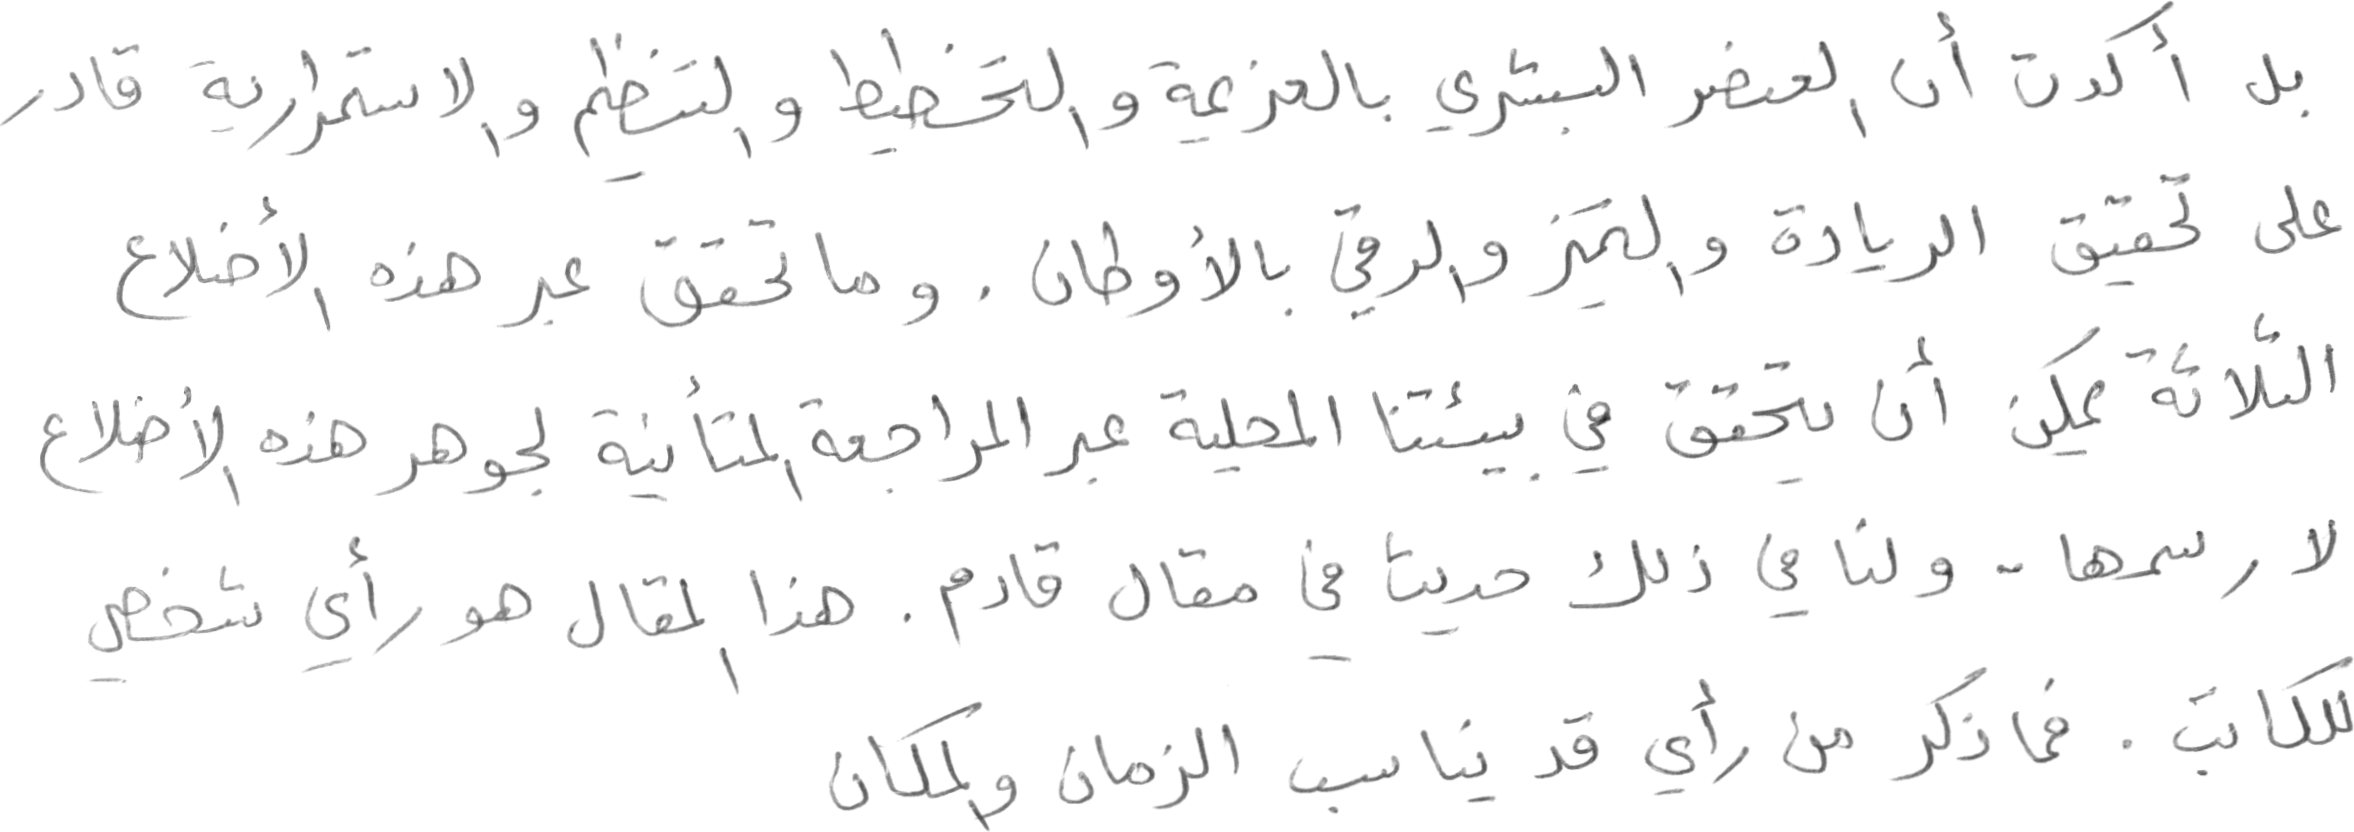 بل أكدت أن العنصر البشري بالعزيمة والتخطيط والتنظيم والاستمرارية قادر
على تحقيق الريادة والتميز والرقي بالأوطان . وما تحقق عبر هذه الأضلاع
الثلاثة يمكن أن يتحقق في بيئتنا المحلية عبر المراجعة المتأنية لجوهر هذه الأضلاع
لا رسمها - ولنا في ذلك حديثا في مقال قادم . هذا المقال هو رأي شخصي
للكاتب . فما ذكر من رأي قد يناسب الزمان والمكان